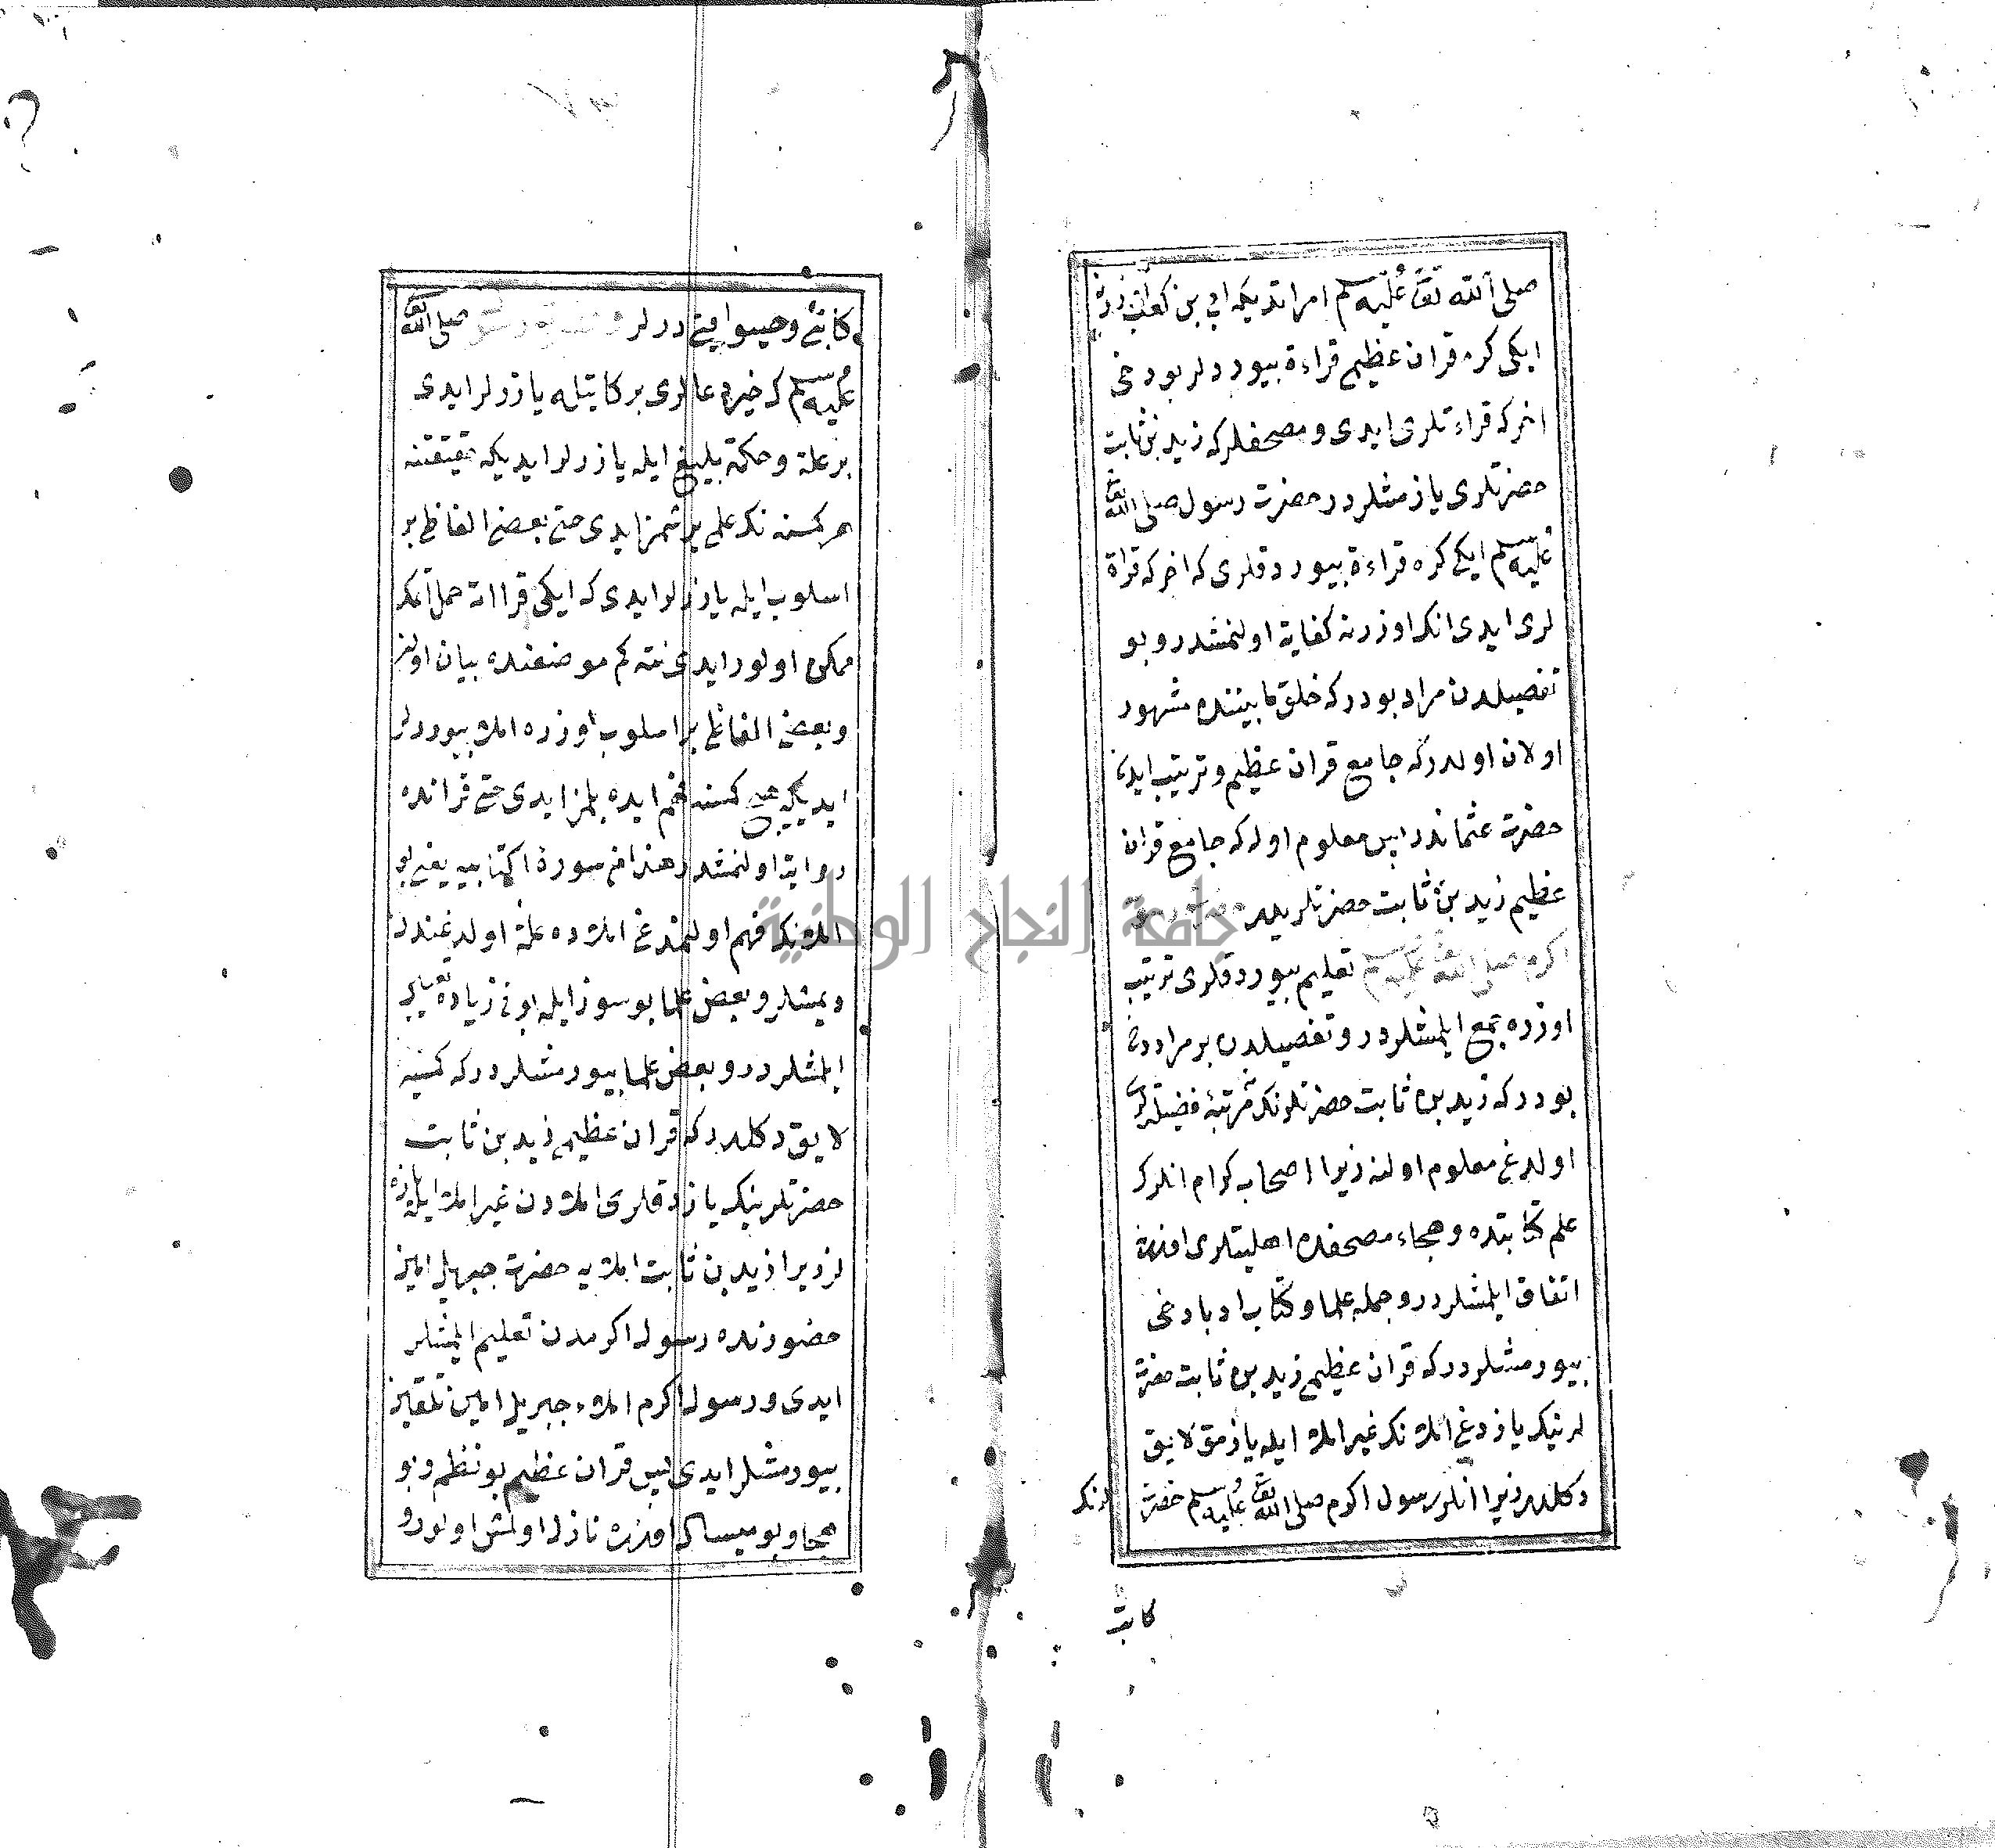 صلى الله تعا عليه سلم امر اتديكه ابى بن كعب اوزرنه
ايكى كره قران عظيم قراءة بيورديلر بو دخى
اخر كه قراءتلرى ايدى ومصحفلر كه زيد بن ثابت
حضرتلرى يازمشلردر حضرت رسول صلى الله تعا
عليه سلم ايكى كره قراءة بيوردقلرى كه اخر كه قراة
لرى ايدى انك اوزرنه كفاية اولنمشدر و بو
تفصيلدن مراد بودر كه خلق مابيننده مشهور
اولان اولدر كه جامع قران عظيم و ترتيب ايدن
حضرت عثماندر پس معلوم اوله كه جامع قران
عظيم زيد بن ثابت حضرتلريدر
اكرم صلى الله تعا عليه سلم تعليم بيوردقلرى ترتيب
اوزره جمع ايلمشلردر و تفصيلدن بر مراد دخى
بودر كه زيد بن ثابت حضرتلرنك مرتبۀ فضيلتلرى
اولدغى معلوم اولنه زيرا اصحاب كرام انلرك
علم كتابتده و هجاء مصحفده اهليتلرى اوزرنه
اتفاق ايلمشلردر و جمله علما و كتاب ادبا دخى
بيورمشلردر كه قران عظيمى زيد بن ثابت حضرت
لرنيك يازدغى املانك غير املا ايله يازمق لايق
دكلدر زيرا انلر رسول اكرم صلى الله تعا عليه سلم حضرت
لرنك
كاتب
كاتبئ وحيسوايتى درلر صلى الله تعا
عليه سلم كه خير دعالرى بركاتيله يازرلر ايدى
بر علة و حكمة بليغ ايله يازرلر ايديكه حقيقتنه
هر كمسنه نك علمى يرشمز ايدى حتى بعضى الفاظى بر
اسلوب ايله يازرلر ايدى كه ايكى قرااته حمل اتمك
ممكن اولور ايدى نته كم موضعنده بيان اولنر
و بعض الفاظى بر اسلوب اوزره املا بيوردلر
ايديكه هيچ كمسنه فهم ايده بلمز ايدى حتى قرانده
رواية اولنمشدر هذا من سورة اكتابيه يعنى بو
املانك فهم اولنمدغى املاده علة اولدغندن
ديمشلر و بعض علما بو سوز ايله بونى زياده تعبير
ايلمشلردر و بعض علما بيورمشلردر كه كمسنيه
لايق دكلدر كه قران عظيمى زيد بن ثابت
حضرتلرنيك يازدقلرى املادن غير املا ايله يازه
لر زيرا زيد بن ثابت املايه حضرت جبريل امين
حضورنده رسول اكرمدن تعليم المشلر
ايدى و رسول اكرم املاء جبريل امين تلقين
بيورمشلر ايدى پس قران عظيم بو نظم و بو
هجا و بو ميساك اوزره نازل اولمش اولور و
جامعة النجاح الوطنية